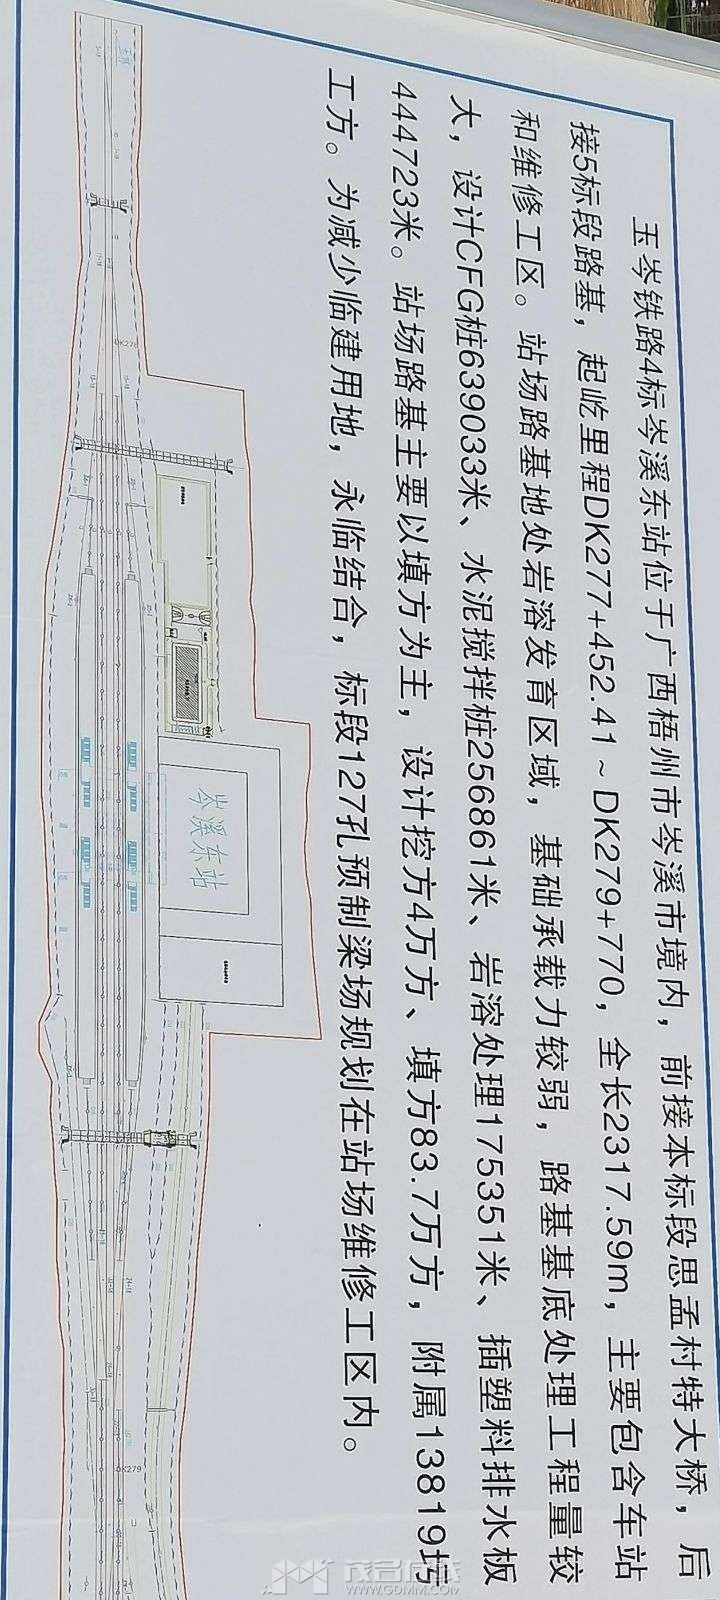 玉岑铁路4标岑溪东站位于广西梧州市岑溪市境内，前接本标段思孟村特大桥，后
接5标段路基，起屹里程DK277+452.41～DK279+770，全长2317.59m，主要包含车站
和维修工区。站场路基地处岩溶发育区域，基础承载力较弱，路基基底处理工程量较
大，设计CFG桩639033米、水泥搅拌桩256861米、岩溶处理175351米、插塑料排水板
444723米。站场路基主要以填方为主，设计挖方4万方、填方83.7万方，附属13819圬
工方。为减少临建用地，永临结合，标段127孔预制梁场规划在站场维修工区内。
岑溪东站
DK278
DK279
茂名在线
WWW.GDMM.COM